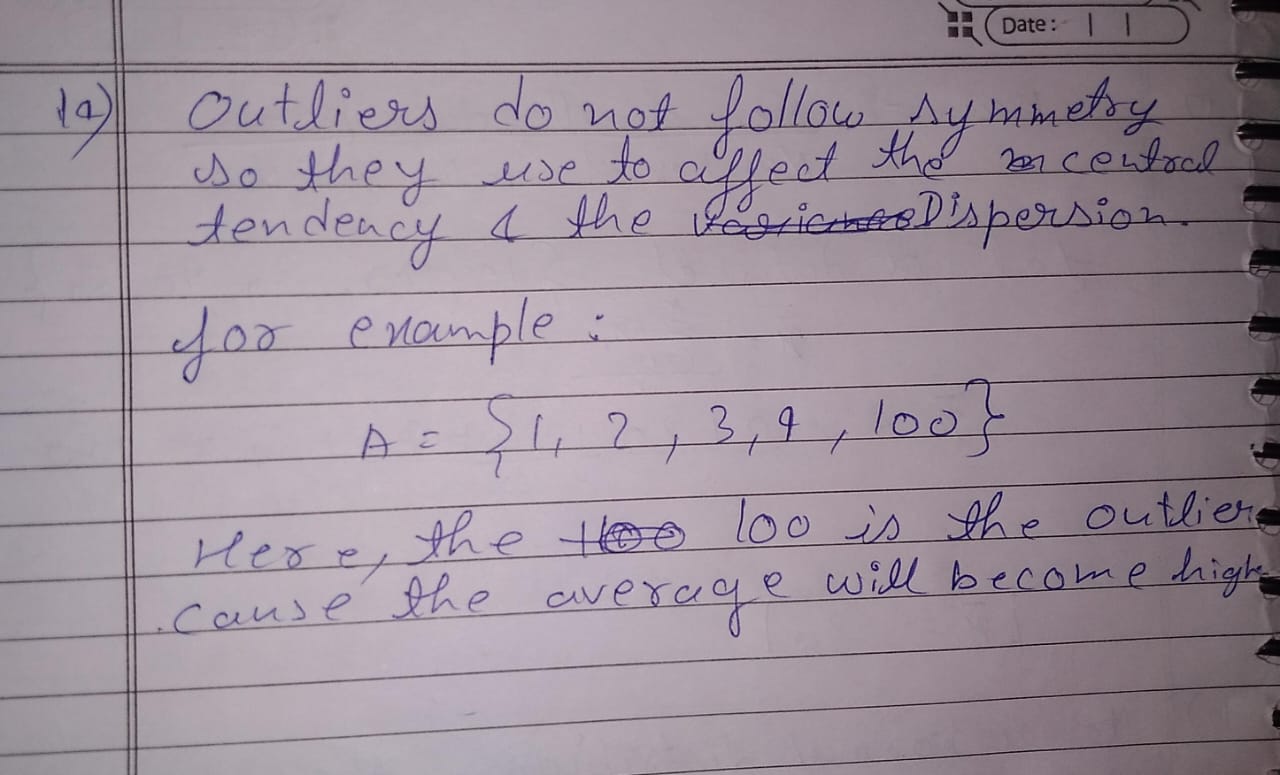 Date:
1a) Outliers do not follow symmetry
so they use to affect the central
tendency & the Dispersion.
for example :
A = {1, 2, 3, 4, 100}
Here, the 100 is the outlier
cause the average will become highe